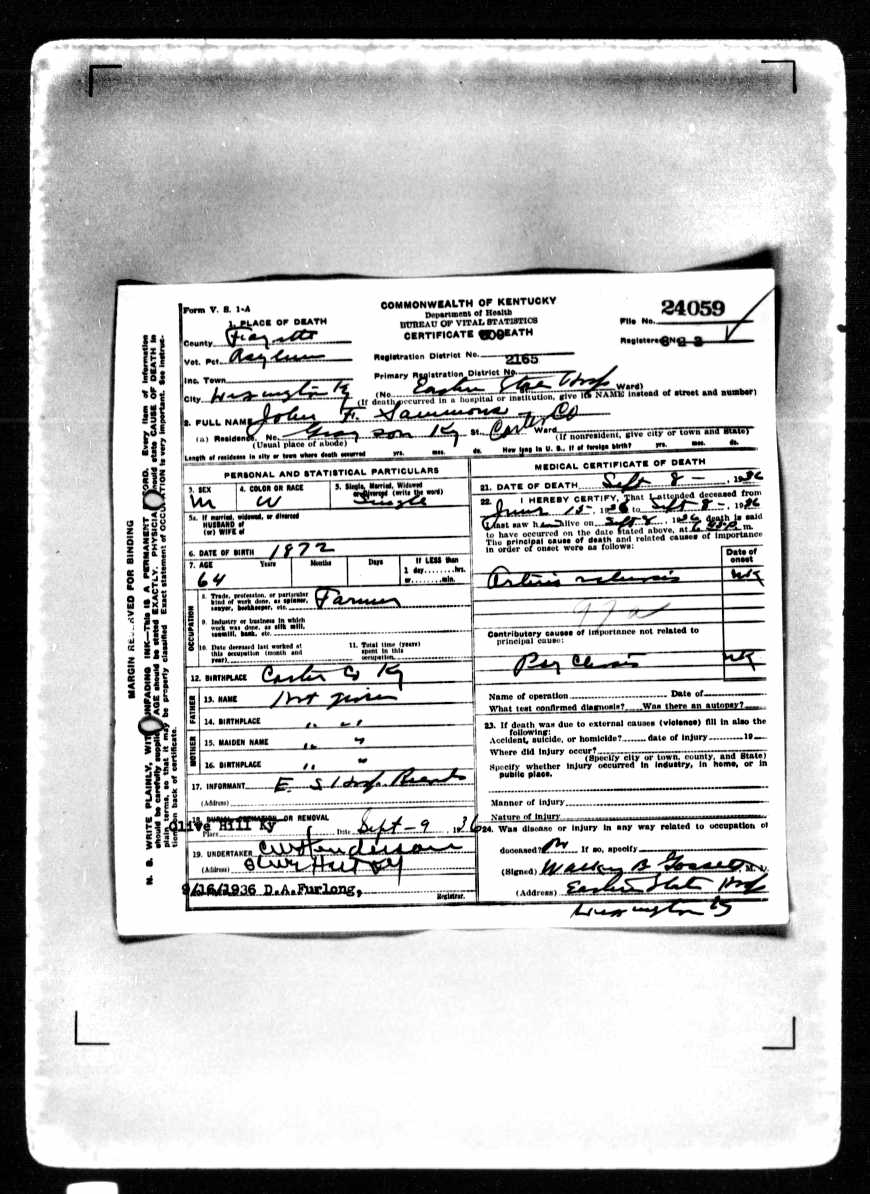 Form V. S. 1-A
COMMONWEALTH OF KENTUCKY
Department of Health
BUREAU OF VITAL STATISTICS
CERTIFICATE OF DEATH
File No. 24059
Registered No.
1. PLACE OF DEATH
County Fayette
Vot. Pct. Asylum
Inc. Town
City Lexington Ky
Registration District No.
2165
Primary Registration District No.
(No. Eastern State Hosp Ward)
(If death occurred in a hospital or institution, give its NAME instead of street and number)
2. FULL NAME John F. Sammons
(a) Residence. No. Grayson Ky St. Carter Co Ward
(Usual place of abode)
(If nonresident, give city or town and State)
Length of residence in city or town where death occurred yrs. mos. ds. How long in U. S., if of foreign birth? yrs. mos. ds.
PERSONAL AND STATISTICAL PARTICULARS
3. SEX
M
4. COLOR OR RACE
W
5. Single, Married, Widowed
or Divorced (write the word)
Single
5a. If married, widowed, or divorced
HUSBAND of
(or) WIFE of
6. DATE OF BIRTH 1872
7. AGE Years Months Days If LESS than
1 day,........hrs.
or........min.
64
OCCUPATION
8. Trade, profession, or particular
kind of work done, as spinner,
sawyer, bookkeeper, etc. Farmer
9. Industry or business in which
work was done, as silk mill,
sawmill, bank, etc.
10. Date deceased last worked at
this occupation (month and
year)
11. Total time (years)
spent in this
occupation
12. BIRTHPLACE Carter Co Ky
FATHER
13. NAME Not given
14. BIRTHPLACE " "
MOTHER
15. MAIDEN NAME " "
16. BIRTHPLACE " "
17. INFORMANT E. S. Hosp. Records
(Address)
18. BURIAL, CREMATION OR REMOVAL
Place Olive Hill Ky Date Sept-9 1936
19. UNDERTAKER CW Henderson
(Address) Olive Hill Ky
9/16/1936 D.A.Furlong,
Registrar.
MEDICAL CERTIFICATE OF DEATH
21. DATE OF DEATH Sept 8 -, 1936
22. I HEREBY CERTIFY, That I attended deceased from
June 15-, 1936 to Sept 8 -, 1936
I last saw him alive on Sept 8, 1936 death is said
to have occurred on the date stated above, at m.
The principal cause of death and related causes of importance
in order of onset were as follows:
Date of
onset
Arterio sclerosis
Contributory causes of importance not related to
principal cause:
Psychosis
Name of operation Date of
What test confirmed diagnosis? Was there an autopsy?
23. If death was due to external causes (violence) fill in also the
following:
Accident, suicide, or homicide? date of injury 19
Where did injury occur?
(Specify city or town, county, and State)
Specify whether injury occurred in industry, in home, or in
public place.
Manner of injury
Nature of injury
24. Was disease or injury in any way related to occupation of
deceased? No If so, specify
(Signed) M. D.
(Address) Eastern State Hosp
Lexington Ky
MARGIN RESERVED FOR BINDING
N. B. WRITE PLAINLY, WITH UNFADING INK—This IS A PERMANENT RECORD. Every item of information
should be carefully supplied. AGE should be stated EXACTLY. PHYSICIANS should state CAUSE OF DEATH in
plain terms, so that it may be properly classified. Exact statement of OCCUPATION is very important. See instruc-
tions on back of certificate.